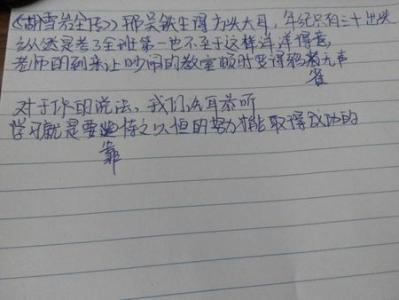 《胡雪岩全传》那吴铁生得方头大耳,年纪只有三十出头
么然是考了全班第一也不至于这样洋洋得意
老师的到来让吵闹的教室顿时变得鸦
雀
无声
对于你的说法,我们洗耳恭听
学习就是要
靠
持之以恒的努力才能取得成功的